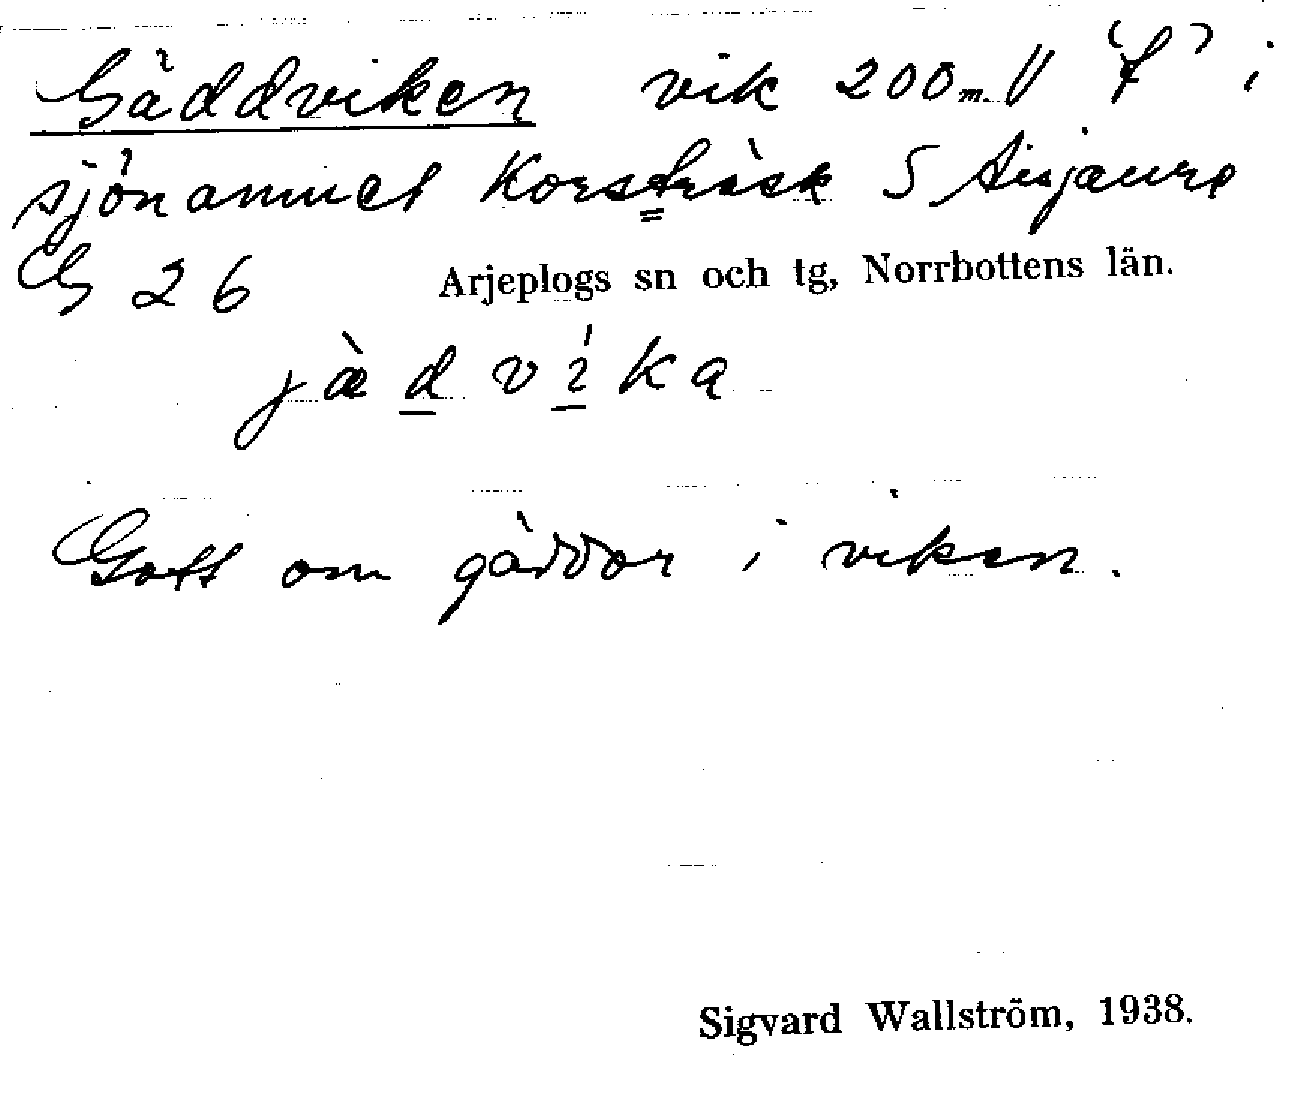 Gäddviken vik 200 m. V "f" i
sjönamnet Korsträsk S Aisjaure
G 26 Arjeplogs sn och tg, Norrbottens län.
jæ̀dvíka
Gott om gäddor i viken.
Sigvard Wallström, 1938.